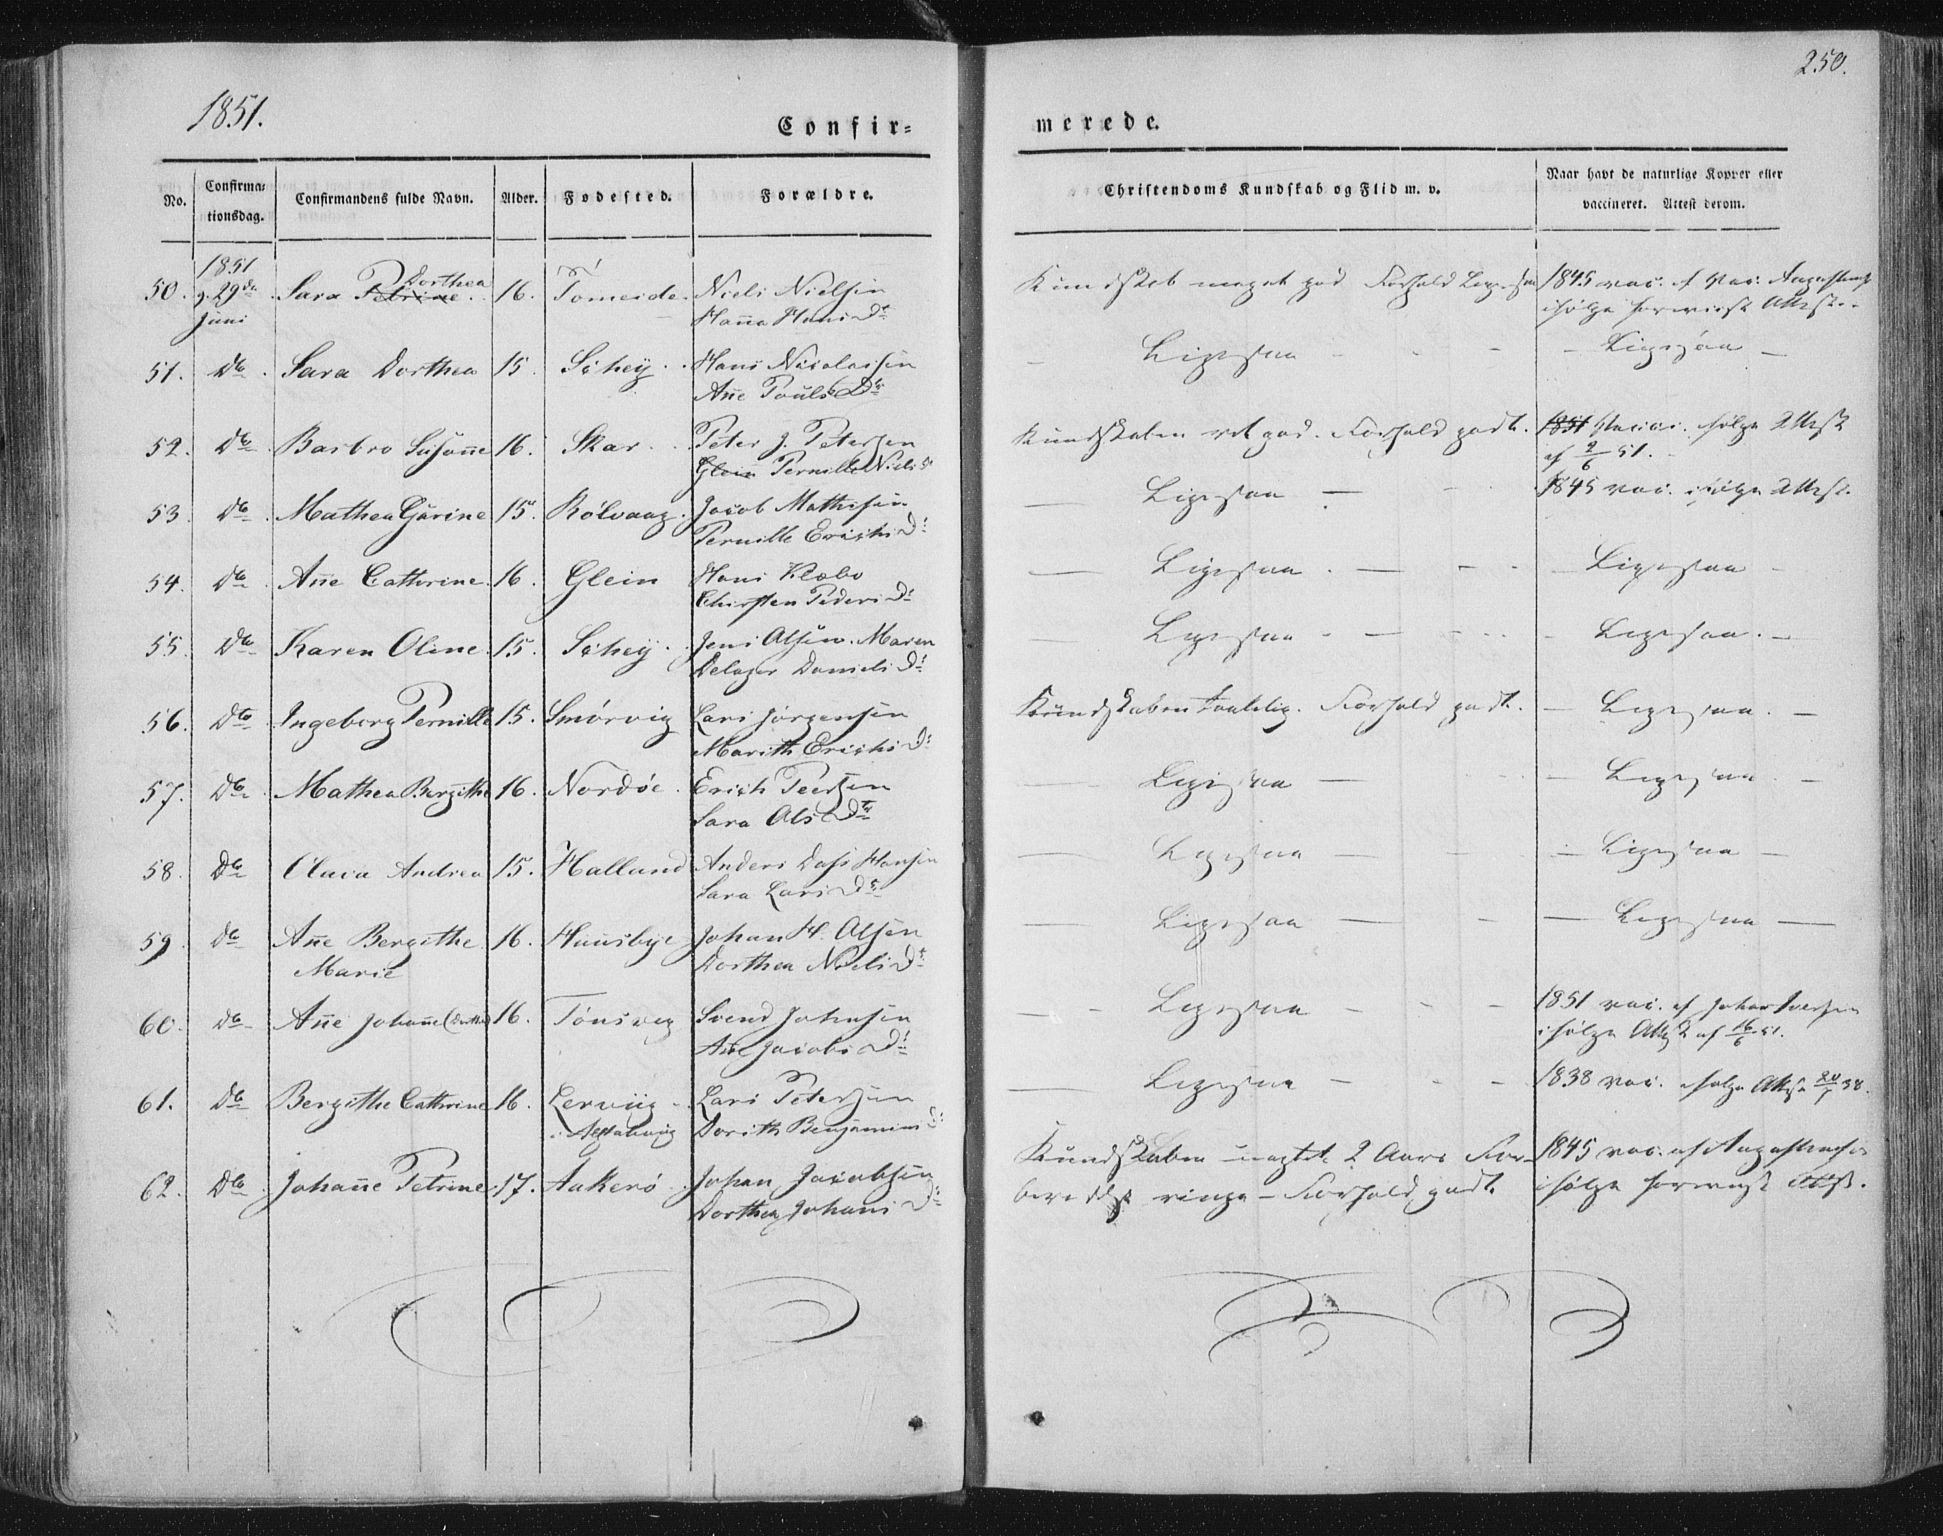 1851.
250.
Confir- merede.
No.
Confirmationsdag.
Confirmandens fulde Navn.
Alder.
Fodested.
Forældre.
Christendoms Kundskab og Flid m. v.
Naar havt de naturlige Kopper eller
vaccineret. Attest derom.
1851
50. 29de Sara Petrine Dorthea 16. Tomeide. Niels Nielsen Kundskab meget god Forhold 1845 vac.
Juni Hanna Hans Dr ifølge forevist Attest.
51. Do Sara Dorthea 15. Hans Nicolaisen Ligesaa Ligesaa
Ane Pouls Dr
52. Do Barbro Susanne 16. Skar. Peter J. Petersen Kundskaben ret god. Forhold godt. 1851 ifølge Attest
Glein Pernille Niels Dr af 2/6 51.
53. Do Mathea Gurine 15. Rolvaag. Jacob Mathisen Ligesaa 1845 vac. ifølge Attest.
Pernille Erichs Dr
54. Do Ane Cathrine. 16. Glein Hans Klæbo Ligesaa Ligesaa
Chirsten Peders Dr
55. Do Karen Oline. 15. Jens Olsen. Maren Ligesaa Ligesaa.
Delager Daniels Dr
56. Do Ingeborg Pernille 15. Smørvig Lars Jørgensen Kundskaben taalelig. Forhold godt. Ligesaa.
Marith Erichs Dr
57. Do Mathea Bergithe 16. Nordøe. Erich Peersen Ligesaa Ligesaa.
Sara Ols Dr
58. Do Olava Andrea 15. Halland Anders Dass Hansen Ligesaa Ligesaa
Sara Lars Dr
59. Do Ane Bergithe 16. Huusbye Johan H. Olsen Ligesaa Ligesaa
Marie Dorthea Niels Dr
60. Do Ane Johanne (Dorthea) 16. Tønsvig Svend Johnsen Ligesaa 1851 vac. af Johan Iversen
Ane Jacobs Dr ifølge Attest af 16/6 51.
61. Do Bergithe Cathrine 16. Lerviig Lars Petersen Ligesaa 1838 vac. ifølge Attest 38.
Dorith Benjamins Dr
62. Do Johanne Petrine. 17. Aakerø Johan Jacobsen Kundskaben uagtet 2 Aars For- 1845 vac. af
Dorthea Johans Dr beredelse ringe - Forhold godt. ifølge forevist Attest.